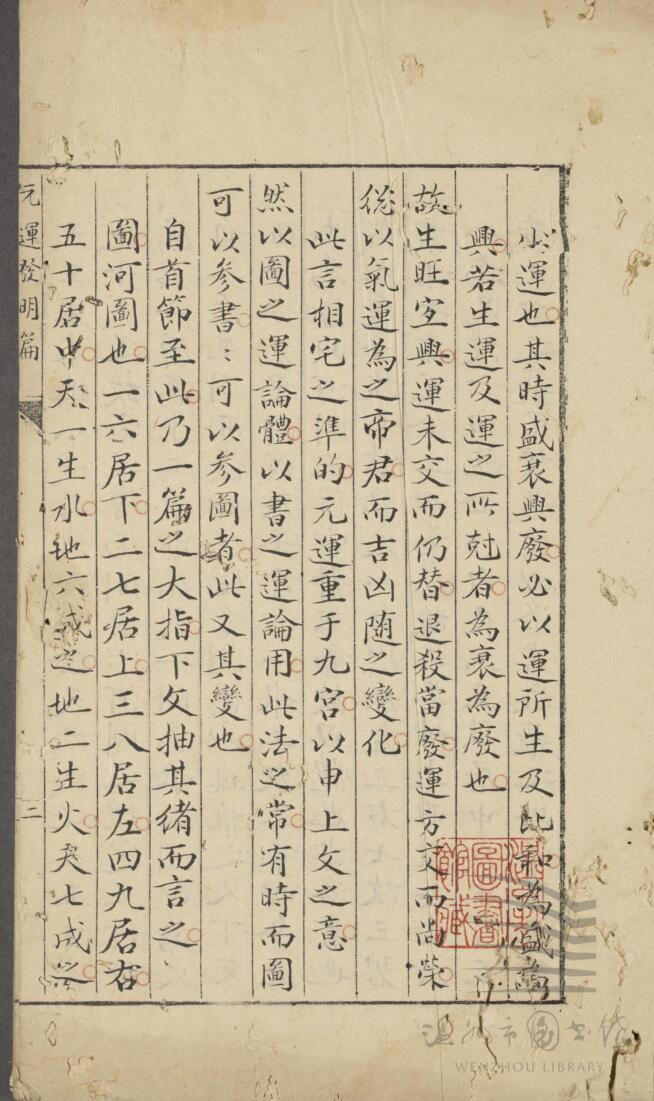 小運也其時盛衰興廢必以運所生及比和為盛為
興若生運及運之所尅者為衰為廢也
故生旺宜興運未交而仍替退殺當廢運方交而尚榮
總以氣運為之帝君而吉凶随之變化
此言相宅之準的元運重于九宮以申上文之意
然以圖之運論體以書之運論用此法之常有時而圖
可以參書〻可以參圖者此又其變也
自首節至此乃一篇之大指下文抽其緒而言之
圖河圖也一六居下二七居上三八居左四九居右
五十居中天一生水地六成之地二生火天七成之
元運發明篇
二
溫州市圖書館
WENZHOU LIBRARY